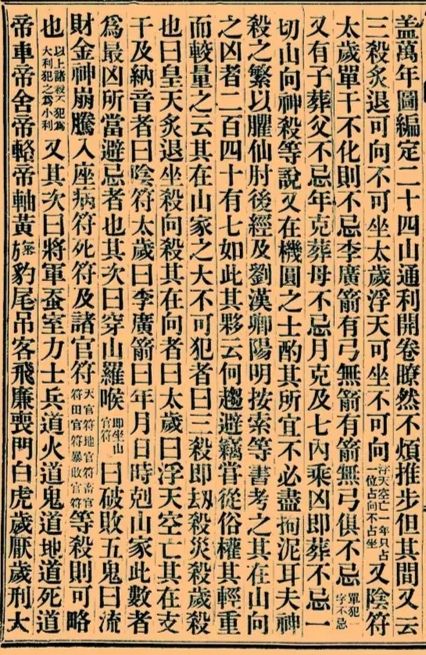 蓋萬年圖編定二十四山通利開卷瞭然不煩推步但其間又云
三殺炙退可向不可坐太歲浮天可坐不可向浮天空亡一年只占一位占向不占坐又陰符
太歲單干不化則不忌李廣箭有弓無箭有箭無弓俱不忌單犯一字不忌
又有子葬父不忌年克葬母不忌月克及七內乘凶即葬不忌一
切山向神殺等說又在機圓之士酌其所宜不必盡拘泥耳夫神
殺之繁以臞仙肘後經及劉漢卿陽明按索等書考之其在山向
之凶者二百四十有七如此其夥云何趨避竊嘗從俗權其輕重
而較量之云其在山家之大不可犯者曰三殺即刼殺災殺歲殺
也曰皇天炙退坐殺向殺其在向者曰太歲曰浮天空亡其在支
干及納音者曰陰符太歲曰李廣箭曰年月日時剋山家此數者
爲最凶所當避忌者也其次曰穿山羅喉即坐山官符曰破敗五鬼曰流
財金神崩騰入座病符死符及諸官符天官符地官符畜官符田官符暴敗官符等殺則可略
也以上諸殺不犯爲大利犯之爲小利又其次曰將軍蚕室力士兵道火道鬼道地道死道
帝車帝舍帝輅帝軸黃旛豹尾吊客飛廉喪門白虎歲厭歲刑大